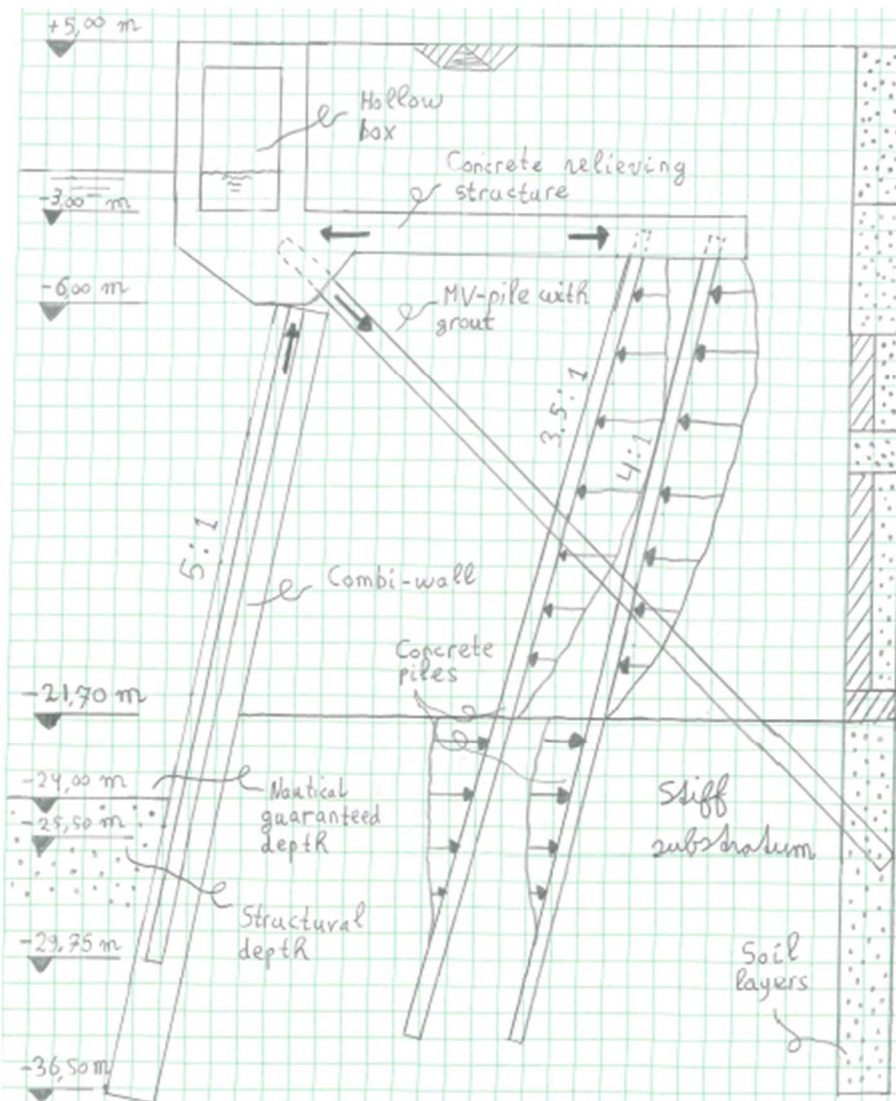 +5,00 m
Hollow
box
Concrete relieving
structure
-3,00 m
-6,00 m
MV-pile with
grout
3.5:1
4:1
5:1
Combi-wall
Concrete
piles
-21,70 m
-24,00 m
Nautical
guaranteed
depth
-25,50 m
Stiff
substratum
Structural
depth
-29,75 m
Soil
layers
-36,50 m